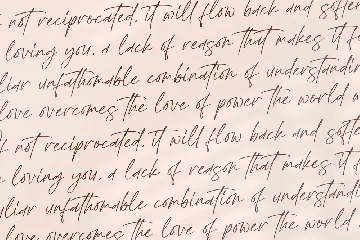 not reciprocated, it will flow back and soften
loving you, a lack of reason that makes it
unfathomable combination of understanding
love overcomes the love of power the world
not reciprocated, it will flow back and
loving you, a lack of reason that makes it
unfathomable combination of understanding
love overcomes the love of power the world